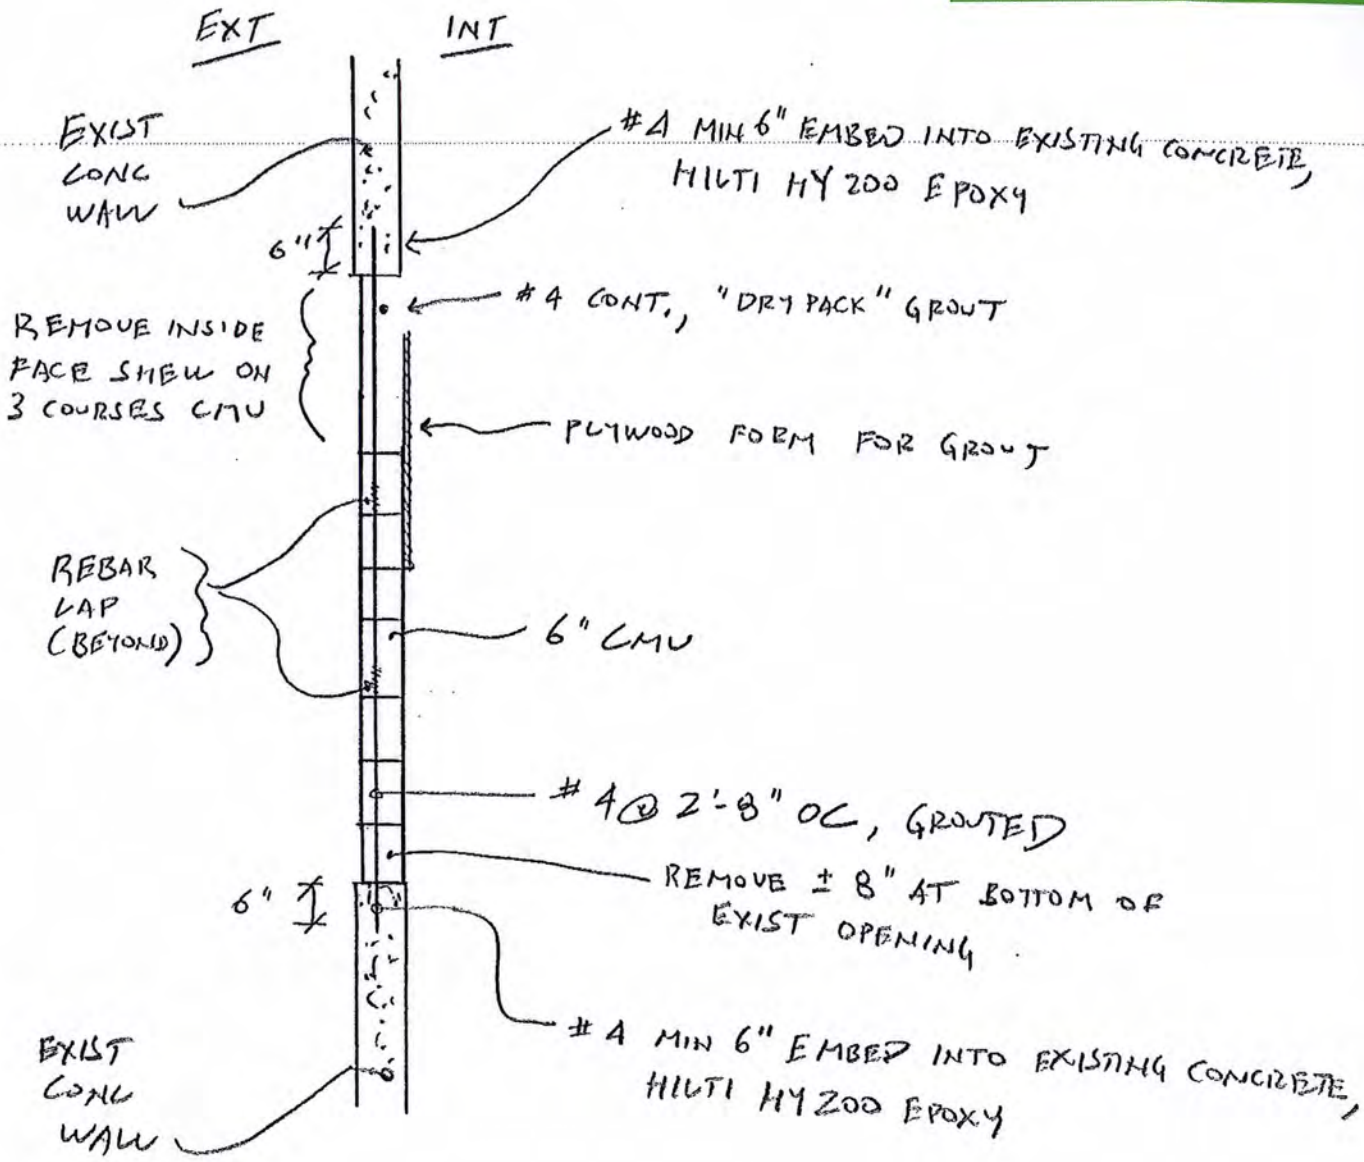 EXT
INT
EXIST
CONC
WALL
#4 MIN 6" EMBED INTO EXISTING CONCRETE,
HILTI HY 200 EPOXY
6"
#4 CONT., "DRY PACK" GROUT
REMOVE INSIDE
FACE SHELL ON
3 COURSES CMU
PLYWOOD FORM FOR GROUT
REBAR
LAP
(BEYOND)
6" CMU
#4 @ 2'-8" OC, GROUTED
6"
REMOVE ± 8" AT BOTTOM OF
EXIST OPENING
EXIST
CONC
WALL
#4 MIN 6" EMBED INTO EXISTING CONCRETE,
HILTI HY 200 EPOXY